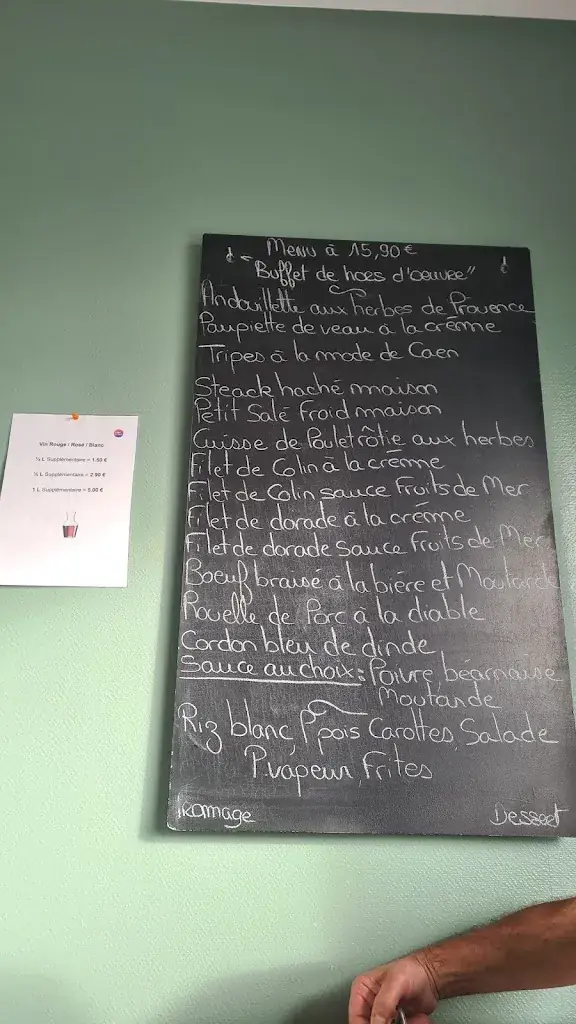 Menu à 15,90 €
"Buffet de hors d'oeuvre"
Andouillette aux herbes de Provence
Paupiette de veau à la crème
Tripes à la mode de Caen
Steack haché maison
Petit Salé Froid maison
Cuisse de Poulet rôtie aux herbes
Filet de Colin à la crème
Filet de Colin sauce Fruits de Mer
Filet de dorade à la crème
Filet de dorade Sauce Fruits de Mer
Boeuf braisé à la bière et Moutarde
Rouelle de Porc à la diable
Cordon bleu de dinde
Sauce au choix : Poivre, béarnaise
Moutarde
Riz blanc, Ppois Carottes, Salade
P vapeur, Frites
Fromage Dessert
Vin Rouge / Rosé / Blanc
¼ L Supplémentaire = 1.50 €
½ L Supplémentaire = 2.50 €
1 L Supplémentaire = 5.00 €